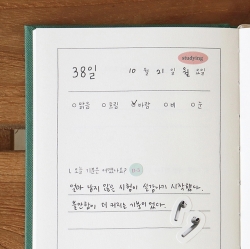 studying
38일 10 월 21 일 월 요일
○ 맑음 ○ 흐림 ○ 바람 ○ 비 ○ 눈
1. 오늘 기분은 어땠나요?
얼마 남지 않은 시험이 실감나기 시작했다.
불안함이 더 커지는 기분이 었다.